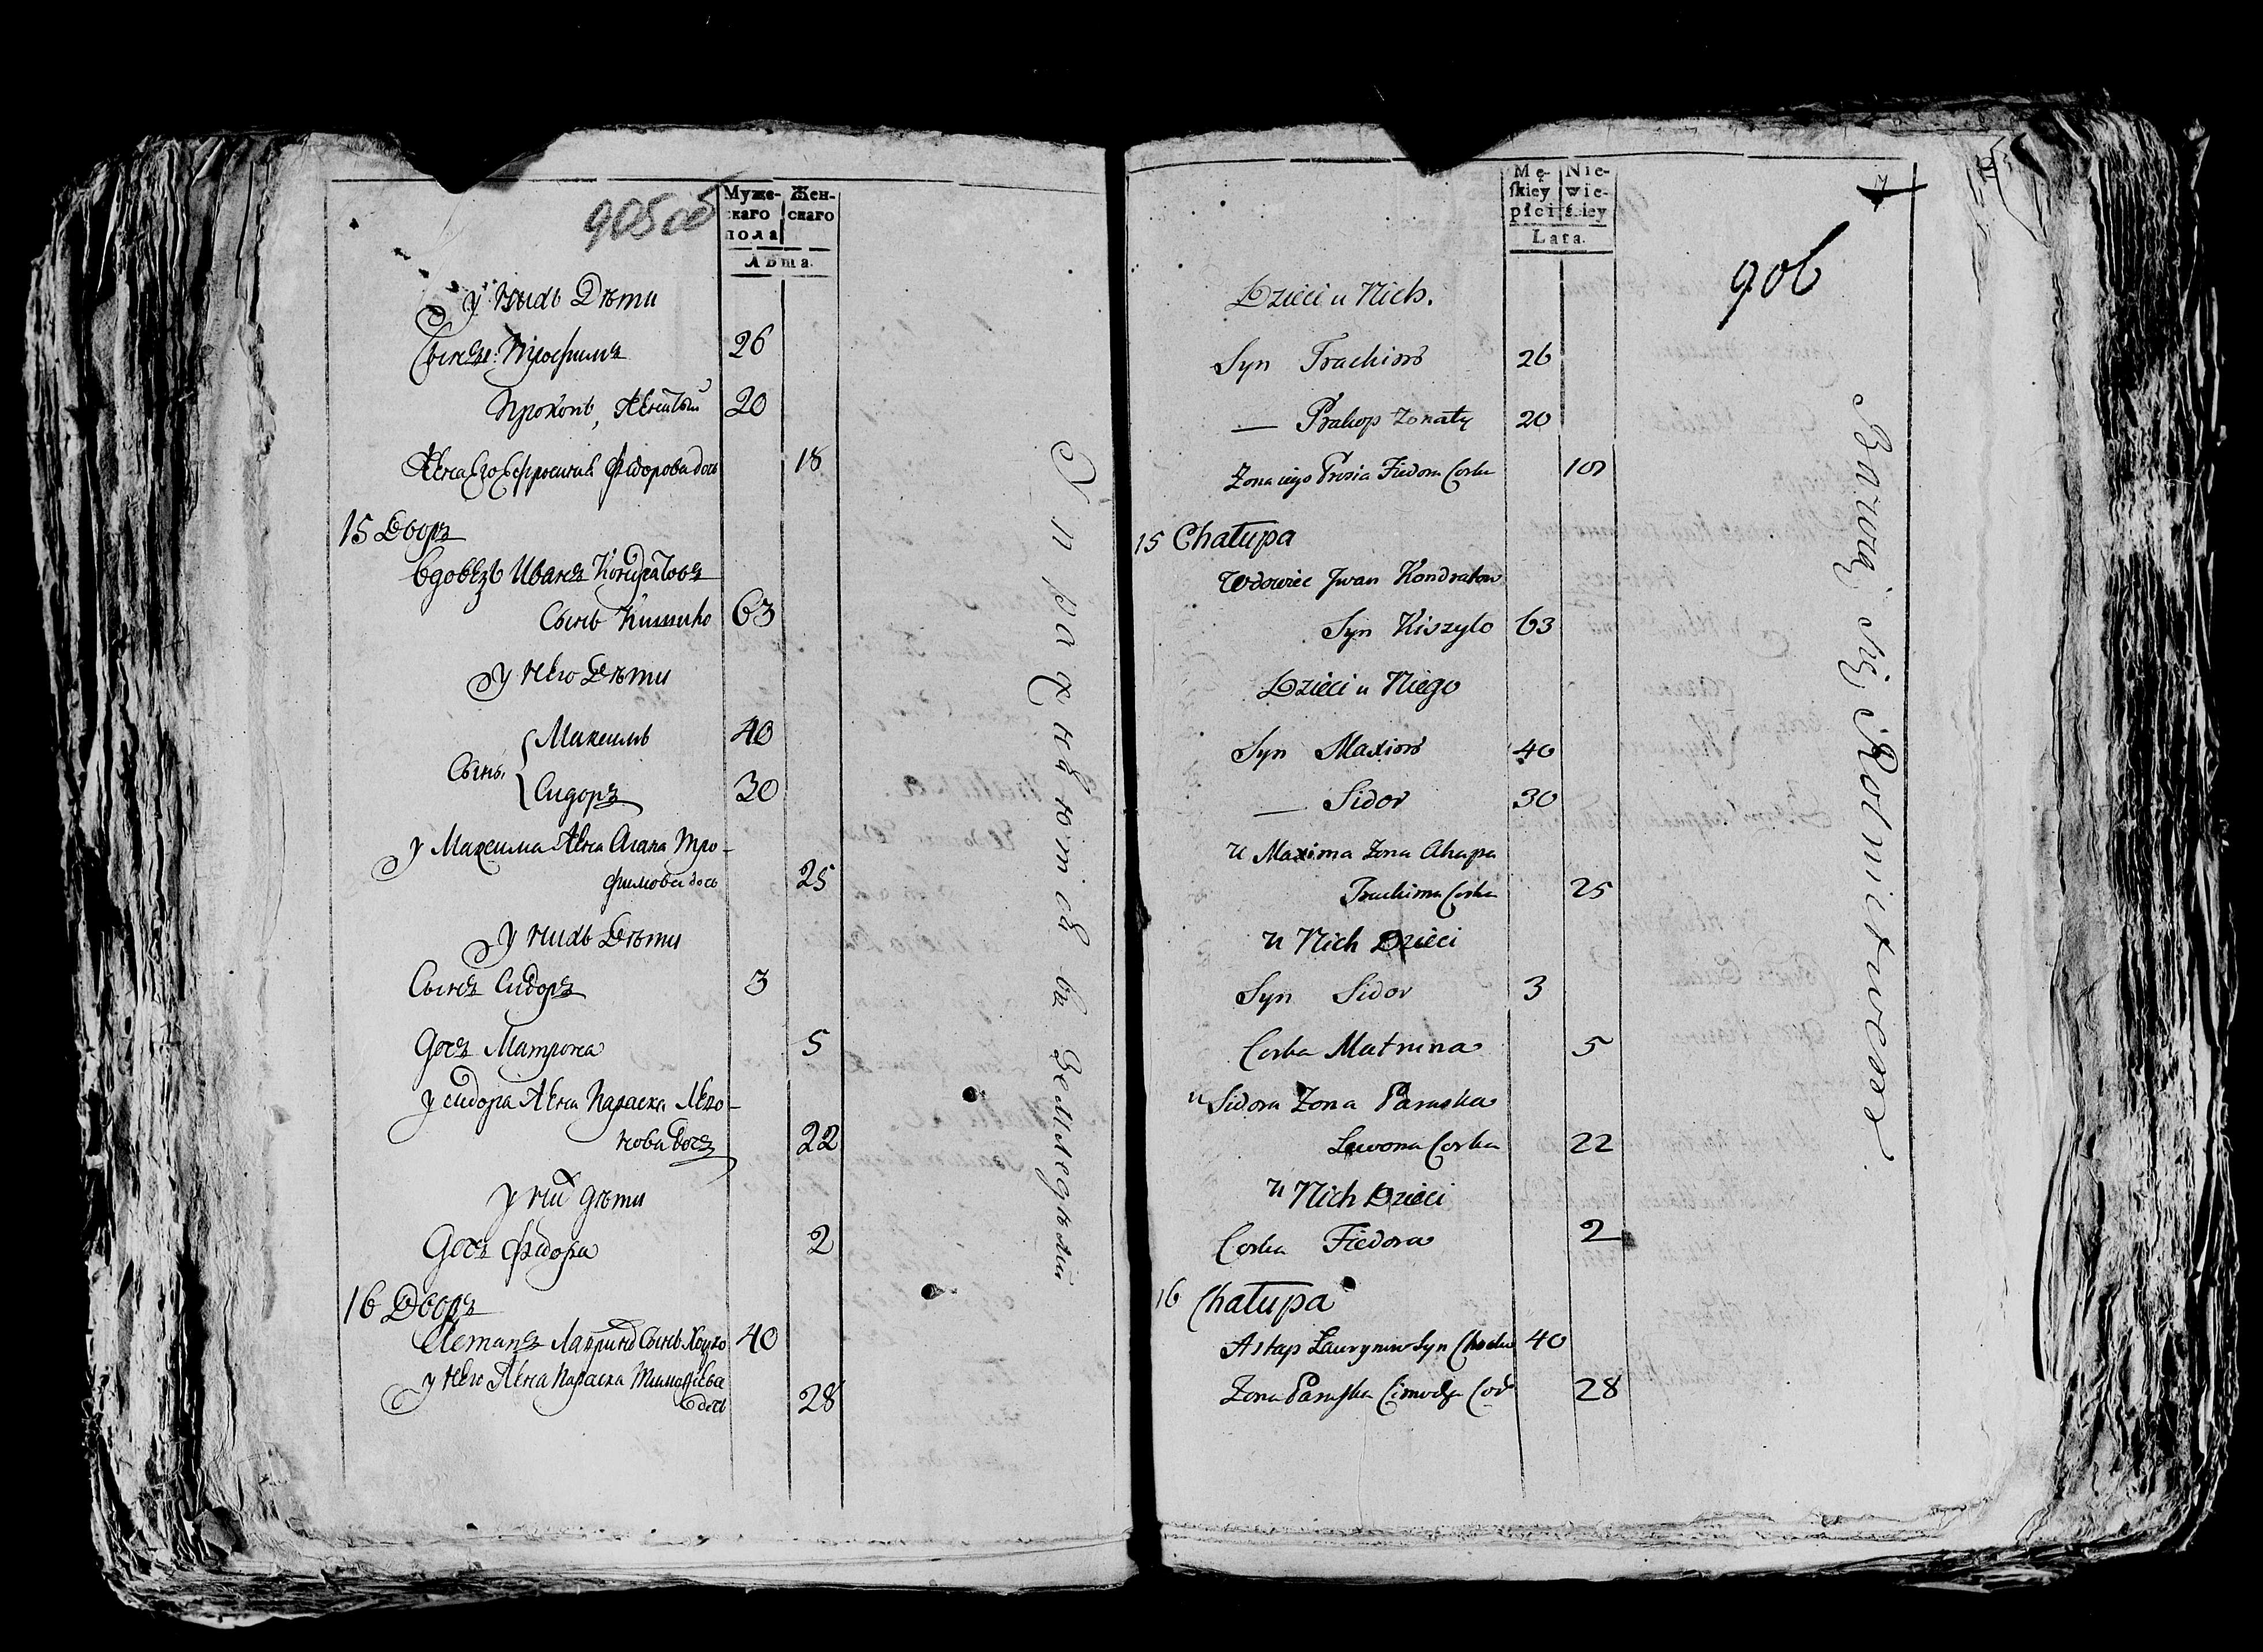 905 об
Муже- Жен-
скаго скаго
пола
Лѣта.
у нихъ Дѣти
Сынъ: Трофимъ 26
Прокопъ, Женатый 20
Жена Его Ефросинья Фёдорова дочь 18
15 Дворъ
Вдовецъ Иванъ Кондратовъ
Сынъ Кишило 63
у Него Дѣти
Сынъ. { Максимъ 40
{ Сидоръ 30
у Максима Жена Агапа Тро-
фимова дочь 25
у нихъ Дѣти
Сынъ Сидоръ 3
Дочь Матрона 5
у сидора Жена Параска Лево-
нова дочь 22
у них дѣти
Дочь Фёдора 2
16 Дворъ
Астапъ Лавриновъ Сынъ Ходко 40
у Него Жена Параска Тимофѣева
дочь 28
Упражняются въ Земледѣліи
Mę- Nie-
ſkiey wie-
płci ściey
Lata.
7
906
Dzieci u Nich.
Syn Trachim 26
— Prakop Zonaty 20
Zona iego Prosia Fiedora Corka 18
15 Chałupa
Wdowiec Jwan Kondratow
Syn Kiszylo 63
Dzieci u Niego
Syn Maxim 40
— Sidor 30
U Maxima Zona Ahapa
Trachima Corka 25
U Nich Dzieci
Syn Sidor 3
Corka Matruna 5
U Sidora Zona Paraska
Lewona Corka 22
U Nich Dzieci
Corka Fiedora 2
16 Chałupa
Astap Laurynow Syn Chodko 40
Zona Paraſka Cimoſza Cor 28
Bawią się Rolnictwem